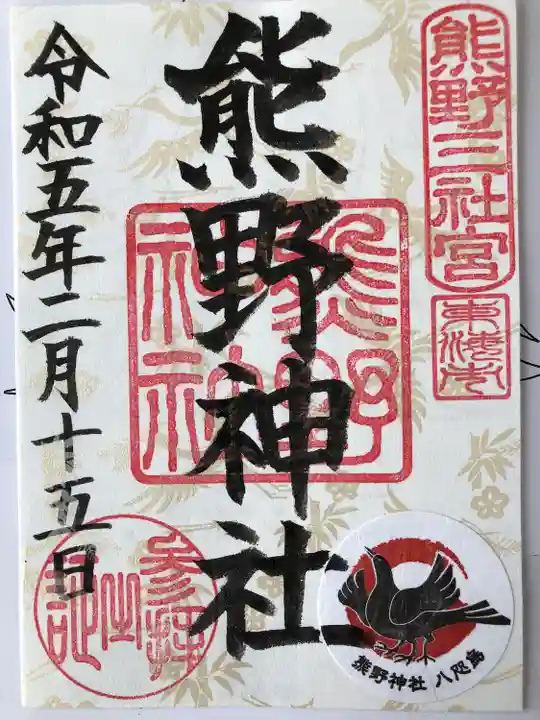 熊野三社宮
東海市
熊野神社
熊野神社
令和五年二月十五日
参拝之記
熊野神社 八咫烏